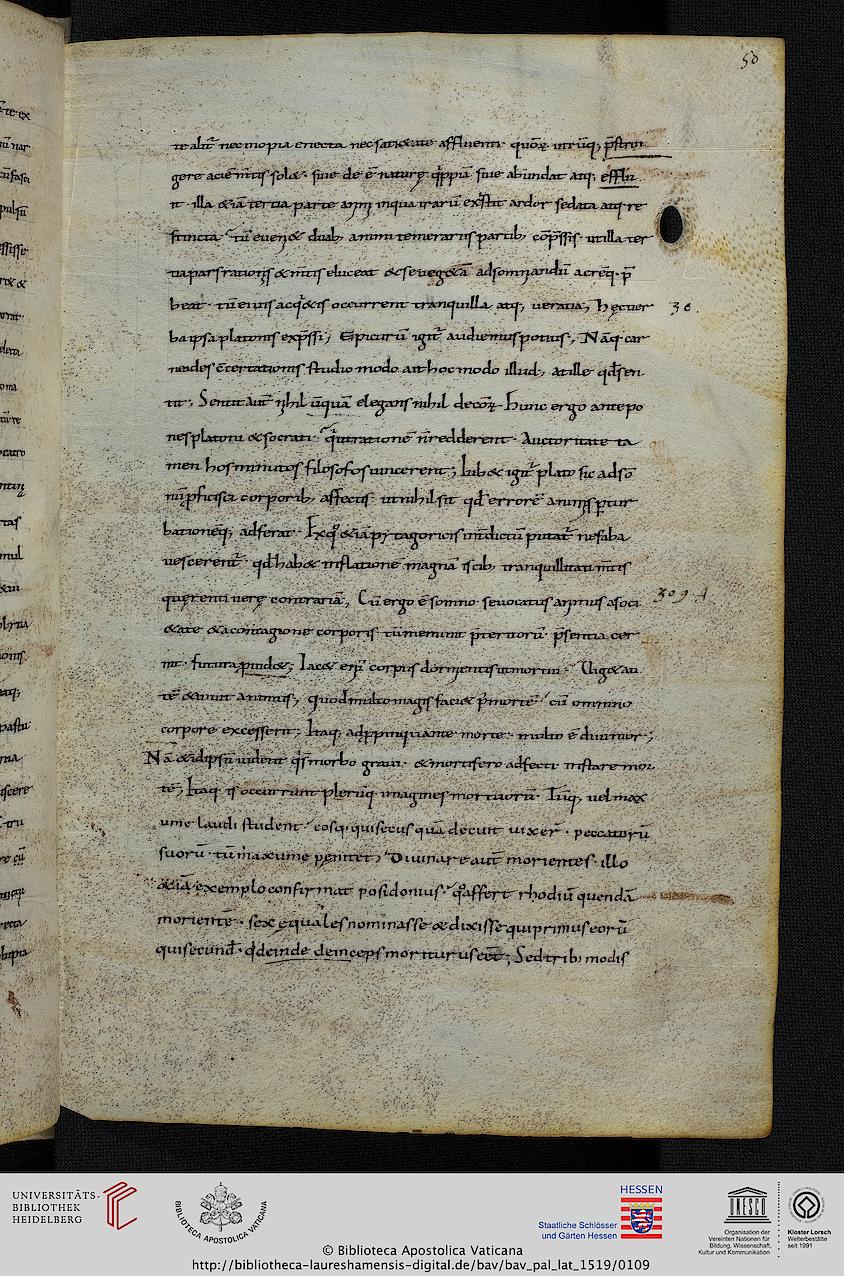 58
te alit̄ nec inopia enecta nec satietate affluenti. quoꝝ utrūq; p̄strin
gere aciē m̄tis solæ. siue de ē naturę q̄ppiā siue abundat atq; efflu
it. illa &iā tertia parte animi in qua irarū exs̄tit ardor sedata atq; re
stincta. tū euenj& duab; animi temerariis partib; cōp̄ssis. ut illa ter
tia pars rationis & m̄tis eluceat & se uegetā ad somniandū acrēq; p̄
beat. tū ei uisa q̄&is occurrent tranquilla atq; ueratia; hęc uer
30.
ba ipsa platonis exp̄ssi; Epicurū igit̄ audiemus potius; Nāq; car
neades c̄certationis studio modo ait hoc modo illud; at ille qđ sen
tit; Sentit aut̄ nihil ūquā elegans nihil decoꝝ. Hunc ergo antepo
nes platoni & socrati. q̄ ut rationē n̄ redderent. Auctoritate ta
men hos minutos filosofos uincerent; Iub& igit̄ plato sic ad sō
nū p̄ficisci corporib; affectis. ut nihil sit qđ errorē animis ptur
bationēq; adferat. Ex quo &iā pytagoricis int̄dictū putat̄ ne faba
uescerent̄. qđ hab& inflationē magnā is cib; tranquillitati m̄tis
querenti uere contrariā; Cū ergo ē somno seuocatus animus a soci
309.
&ate & a contagione corporis. tū meminit p̄teritorū. p̄sentia cer
nit. futura puid&; Iac& enī corpus dormientis ut mortui. Uig& au
tē &uiuit animus; quod multo magis faci& p̄ mortē. cū omnino
corpore excesserit; Itaq; adppinquante morte. multo ē diuinior;
Nā &idipsū uident qs̄ morbo graui. & mortifero adfecti instare mor
tē; Itaq; is occurrunt plerūq; imagines mortuorū. Tūq; uel max
ume laudi student. eosq; qui secus quā decuit uixer̄. peccatorū
suorū. tū maxume penitet; Diuinare aut̄ morientes. illo
&iā exemplo confirmat posidonius. q̊ affert rhodiū quendā
morientē. sex equales nominasse & dixisse qui primus eorū
qui secund̄. qđ deinde deinceps moriturus eēt; Sed trib; modis
UNIVERSITÄTS-
BIBLIOTHEK
HEIDELBERG
BIBLIOTECA APOSTOLICA VATICANA
HESSEN
Staatliche Schlösser
und Gärten Hessen
UNESCO
Organisation der
Vereinten Nationen für
Bildung, Wissenschaft,
Kultur und Kommunikation
Kloster Lorsch
Welterbestätte
seit 1991
© Biblioteca Apostolica Vaticana
http://bibliotheca-laureshamensis-digital.de/bav/bav_pal_lat_1519/0109